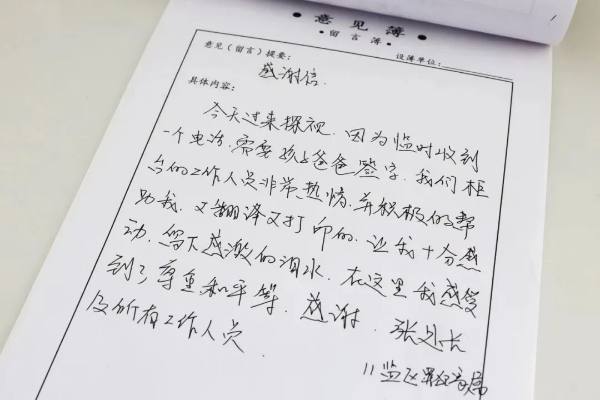 意见簿
留言簿
意见（留言）提要：
设簿单位：
感谢信
具体内容：
今天过来探视，因为临时收到
一个电话，需要孩子爸爸签字，我们柜
台的工作人员非常热情，并积极的帮
助我，又翻译又打印的，让我十分感
动，留下感激的泪水，在这里我感受
到了尊重和平等，感谢，张处长
及所有工作人员
11监区罪犯家属